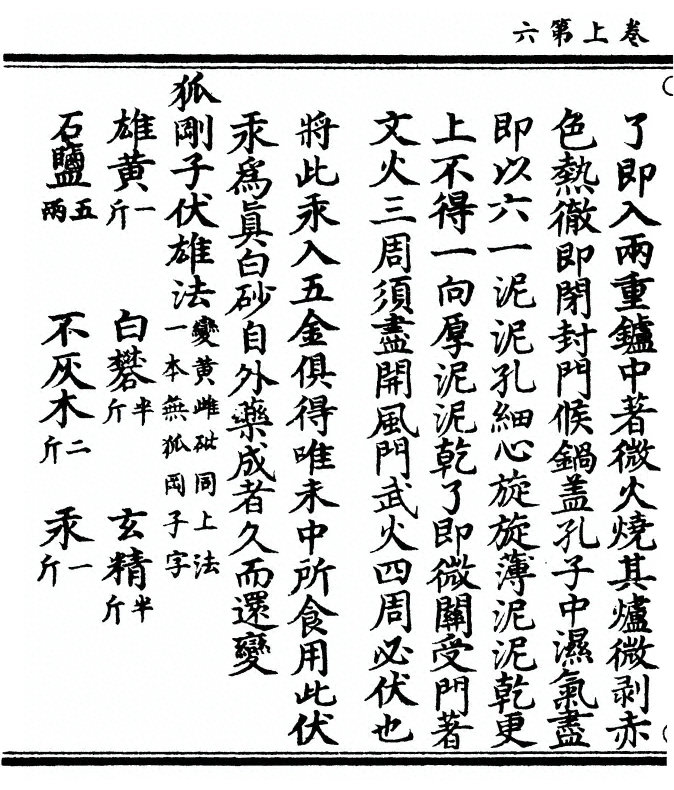 卷上第六
了即入兩重鑪中著微火燒其爐微剥赤
色熱徹即閉封門候鍋盖孔子中濕氣盡
即以六一泥泥孔細心旋旋薄泥泥乾更
上不得一向厚泥泥乾了即微關受門著
文火三周須盡開風門武火四周必伏也
將此汞入五金俱得唯未中所食用此伏
汞爲眞白砂自外藥成者久而還變
狐剛子伏雄法變黄雌砒同上法一本無狐罡子字
雄黄一斤 白礬半斤 玄精半斤
石鹽五兩 不灰木二斤 汞一斤